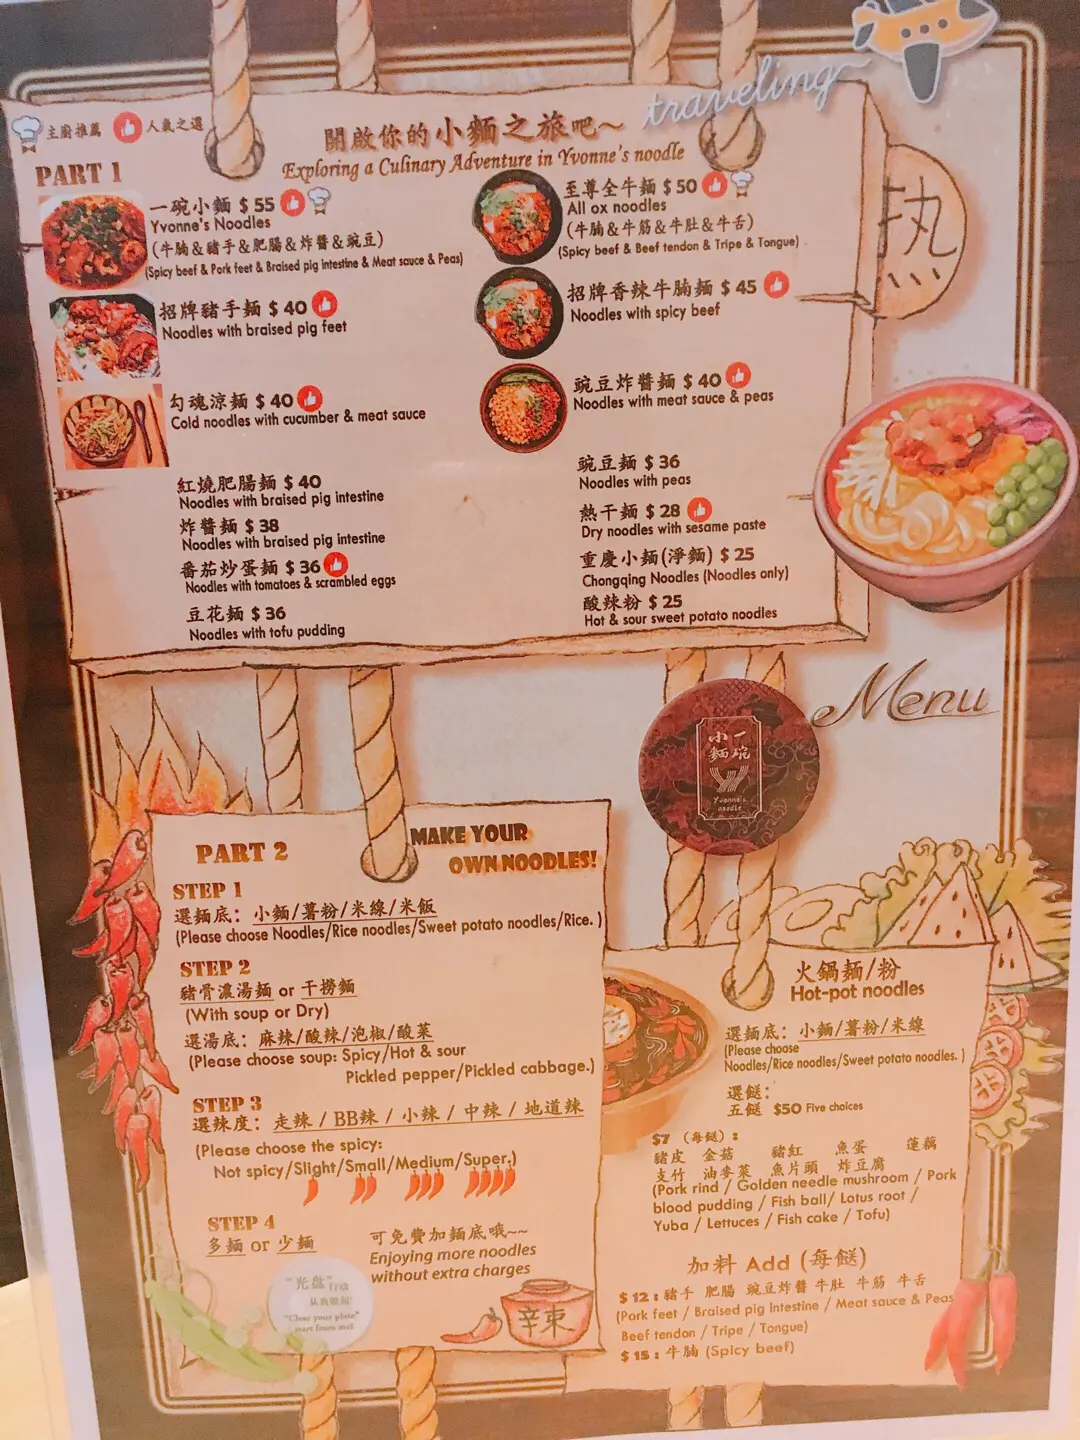 traveling
主廚推薦 人氣之選
開啟你的小麵之旅吧～
Exploring a Culinary Adventure in Yvonne's noodle
PART 1
热
一碗小麵 $ 55
Yvonne's Noodles
(牛腩&豬手&肥腸&炸醬&豌豆)
(Spicy beef & Pork feet & Braised pig intestine & Meat sauce & Peas)
招牌豬手麵 $ 40
Noodles with braised pig feet
勾魂涼麵 $ 40
Cold noodles with cucumber & meat sauce
紅燒肥腸麵 $ 40
Noodles with braised pig intestine
炸醬麵 $ 38
Noodles with braised pig intestine
番茄炒蛋麵 $ 36
Noodles with tomatoes & scrambled eggs
豆花麵 $ 36
Noodles with tofu pudding
至尊全牛麵 $ 50
All ox noodles
(牛腩&牛筋&牛肚&牛舌)
(Spicy beef & Beef tendon & Tripe & Tongue)
招牌香辣牛腩麵 $ 45
Noodles with spicy beef
豌豆炸醬麵 $ 40
Noodles with meat sauce & peas
豌豆麵 $ 36
Noodles with peas
熱干麵 $ 28
Dry noodles with sesame paste
重慶小麵(淨麵) $ 25
Chongqing Noodles (Noodles only)
酸辣粉 $ 25
Hot & sour sweet potato noodles
Menu
一碗
小麵
Yvonne's
noodle
PART 2
MAKE YOUR
OWN NOODLES!
STEP 1
選麵底：小麵/薯粉/米線/米飯
(Please choose Noodles/Rice noodles/Sweet potato noodles/Rice. )
STEP 2
豬骨濃湯麵 or 干撈麵
(With soup or Dry)
選湯底：麻辣/酸辣/泡椒/酸菜
(Please choose soup: Spicy/Hot & sour
Pickled pepper/Pickled cabbage.)
STEP 3
選辣度：走辣 / BB辣 / 小辣 / 中辣 / 地道辣
(Please choose the spicy:
Not spicy/Slight/Small/Medium/Super.)
STEP 4
多麵 or 少麵
可免費加麵底哦~~
Enjoying more noodles
without extra charges
"光盘"行动
从我做起!
"Clear your plate"
start from me!
辛束
火鍋麵/粉
Hot-pot noodles
選麵底：小麵/薯粉/米線
(Please choose
Noodles/Rice noodles/Sweet potato noodles. )
選餸：
五餸 $50 Five choices
$7 (每餸)：
豬皮 金菇 豬紅 魚蛋 蓮藕
支竹 油麥菜 魚片頭 炸豆腐
(Pork rind / Golden needle mushroom / Pork
blood pudding / Fish ball/ Lotus root /
Yuba / Lettuces / Fish cake / Tofu)
加料 Add (每餸)
$ 12：豬手 肥腸 豌豆炸醬 牛肚 牛筋 牛舌
(Pork feet / Braised pig Intestine / Meat sauce & Peas
Beef tendon / Tripe / Tongue)
$ 15：牛腩 (Spicy beef)